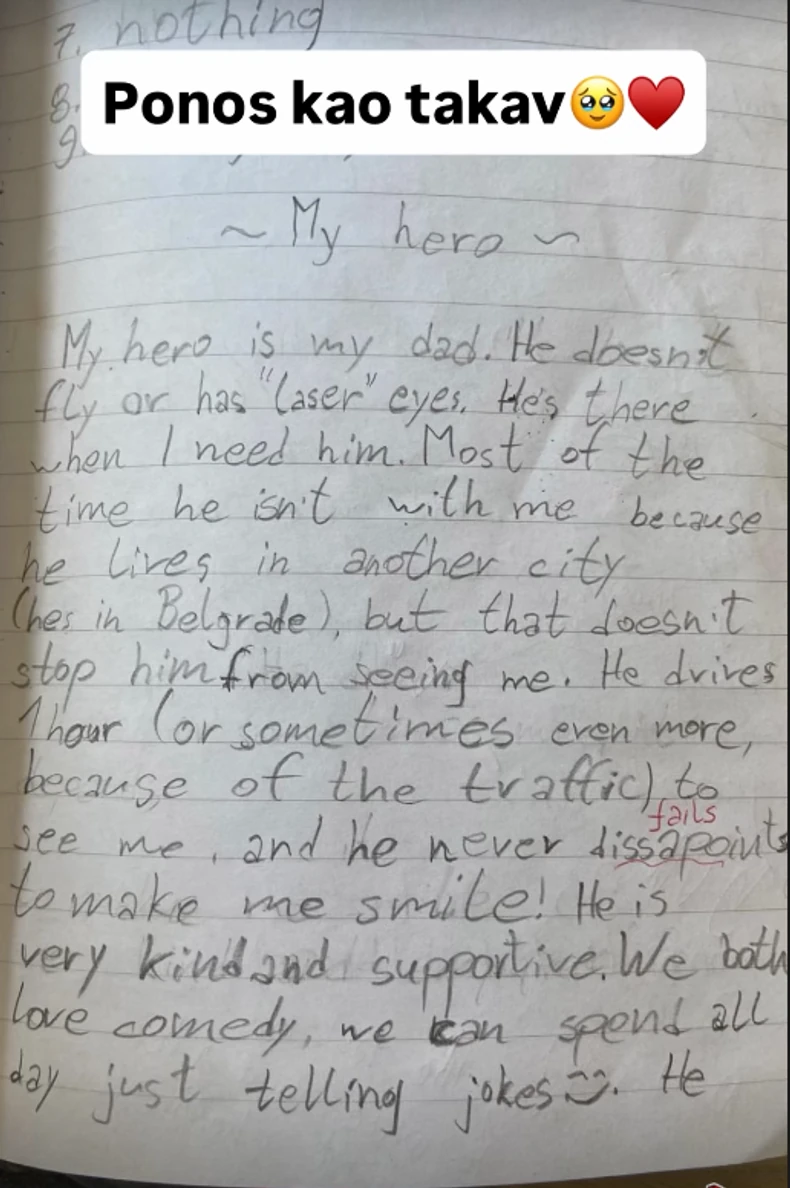 7. nothing
8.
9.
Ponos kao takav🥹♥️
~ My hero ~
My hero is my dad. He doesn't
fly or has "laser" eyes. He's there
when I need him. Most of the
time he isn't with me because
he lives in another city
(hes in Belgrade), but that doesn't
stop him from seeing me. He drives
1 hour (or sometimes even more,
because of the traffic) to
fails
see me, and he never dissapoints
to make me smile! He is
very kind and supportive. We both
love comedy, we can spend all
day just telling jokes :). He